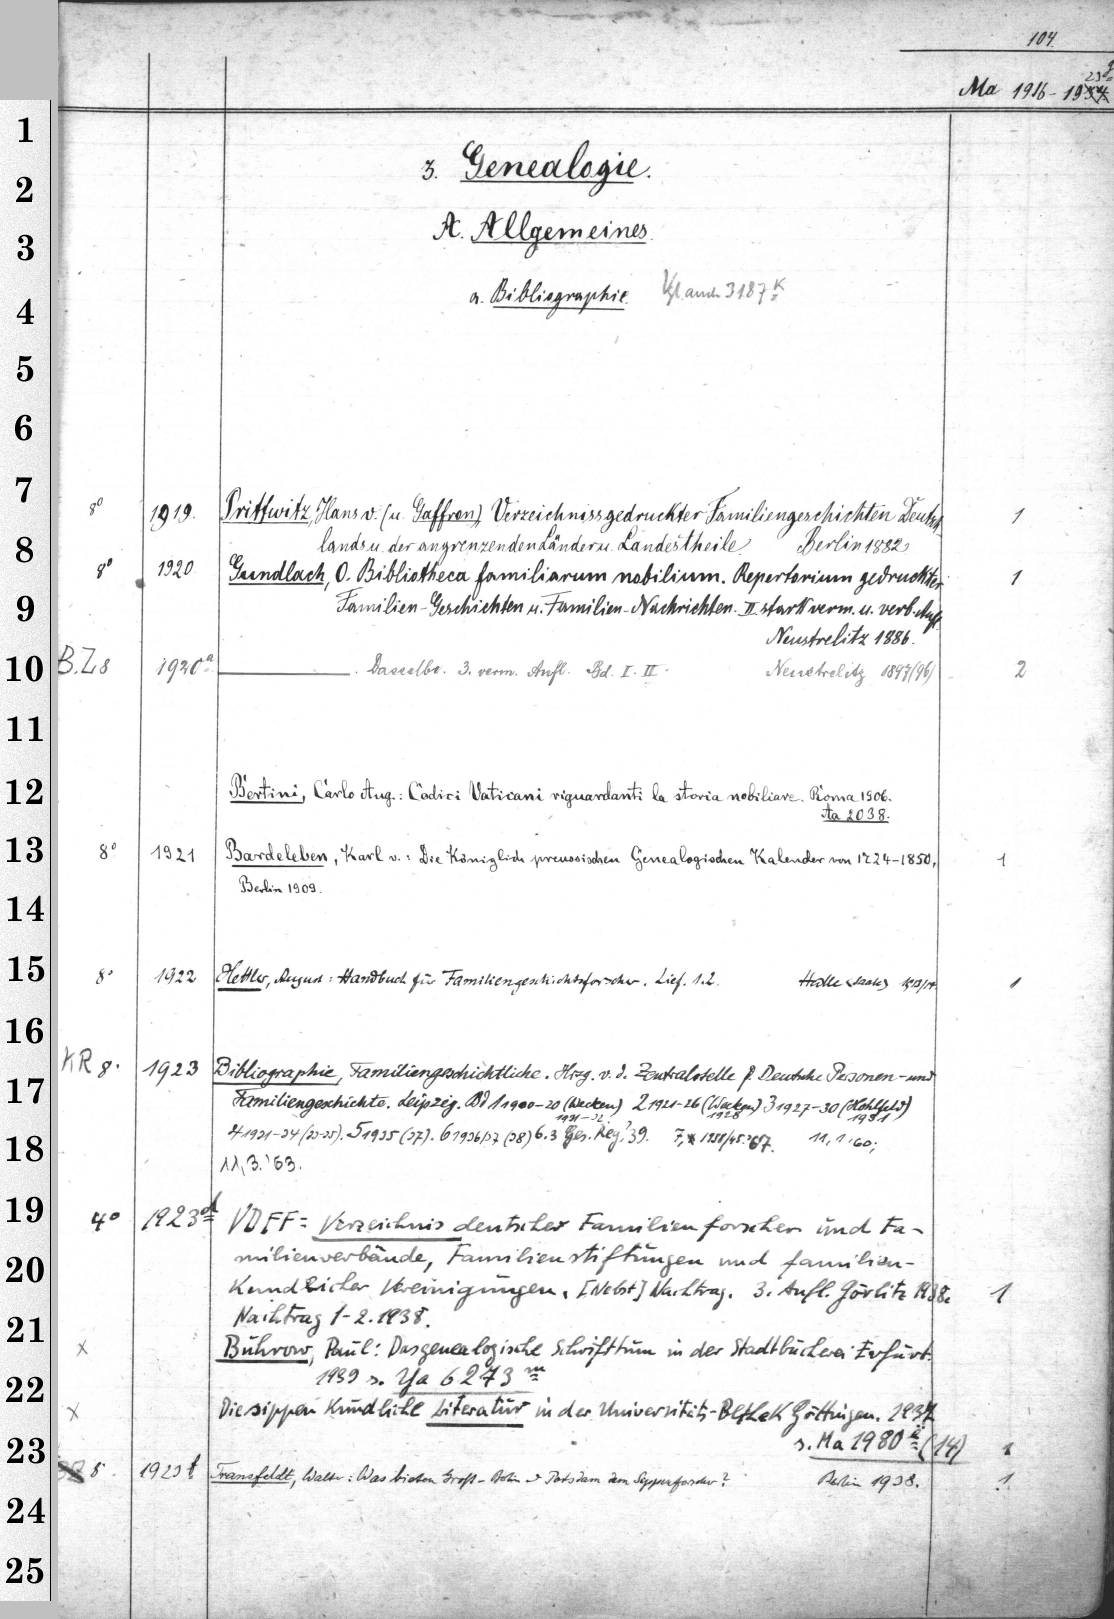 104.
Ma 1916-19
1
2
3. Genealogie.
3
A. Allgemeines.
4
a. Bibliographie. Vgl. auch 3187 K
5
6
7
8° 1919. Prittwitz, Hans v. (u. Gaffron) Verzeichniss gedruckter Familiengeschichten Deutsch- 1
8
lands u. der angrenzenden Länder u. Landestheile. Berlin 1882
8° 1920 Gundlach, O. Bibliotheca familiarum nobilium. Repertorium gedruckter 1
9
Familien-Geschichten u. Familien-Nachrichten. II stark verm. u. verb. Aufl.
Neustrelitz 1886.
10
B.Z. 8 1920a . Dasselbe. 3. verm. Aufl. Bd. I. II. Neustrelitz 1897(96) 2
11
12
Bertini, Carlo Aug.: Codici Vaticani riguardanti la storia nobiliare. Roma 1906.
Aa 2038.
13
8° 1921 Bardeleben, Karl v.: Die Königlich preussischen Genealogischen Kalender von 1724-1850, 1
Berlin 1909.
14
15
8° 1922 Hettler, August: Handbuch für Familiengeschichtsforscher. Lief. 1.2. Halle <Saale> 1913/14. 1
16
KR 8. 1923 Bibliographie, Familiengeschichtliche. Hrsg. v. d. Zentralstelle f. Deutsche Personen- und
17
Familiengeschichte. Leipzig. Bd 1 1900-20 (Wecken) 2 1921-26 (Wecken) 3 1927-30 (Hohlfeld)
1931-32 1928 1931
18
4 1931-34 (33-35). 5 1935 (37). 6 1936/37 (38) 6.3 Ges. Reg.'39. 7, 1938/45.'67. 11, 1.'60;
11, 3.'63.
19
4° 1923d VDFF = Verzeichnis deutscher Familienforscher und Fa-
20
milienverbände, Familienstiftungen und familien-
kundlicher Vereinigungen. [Nebst] Nachtrag. 3. Aufl. Görlitz 1938. 1
21
Nachtrag 1-2. 1938.
x Buhrow, Paul: Das genealogische Schrifttum in der Stadtbücherei Erfurt.
22
1939 s. Ya 6273 m
x Die sippenkundliche Literatur in der Universitäts-Bethek Göttingen. 1937
23
s. Ma 1980 k (14) 1
8. 1923t Transfeldt, Walter: Was bieten Groß-Berlin u. Potsdam dem Sippenforscher? Berlin 1938. 1
24
25